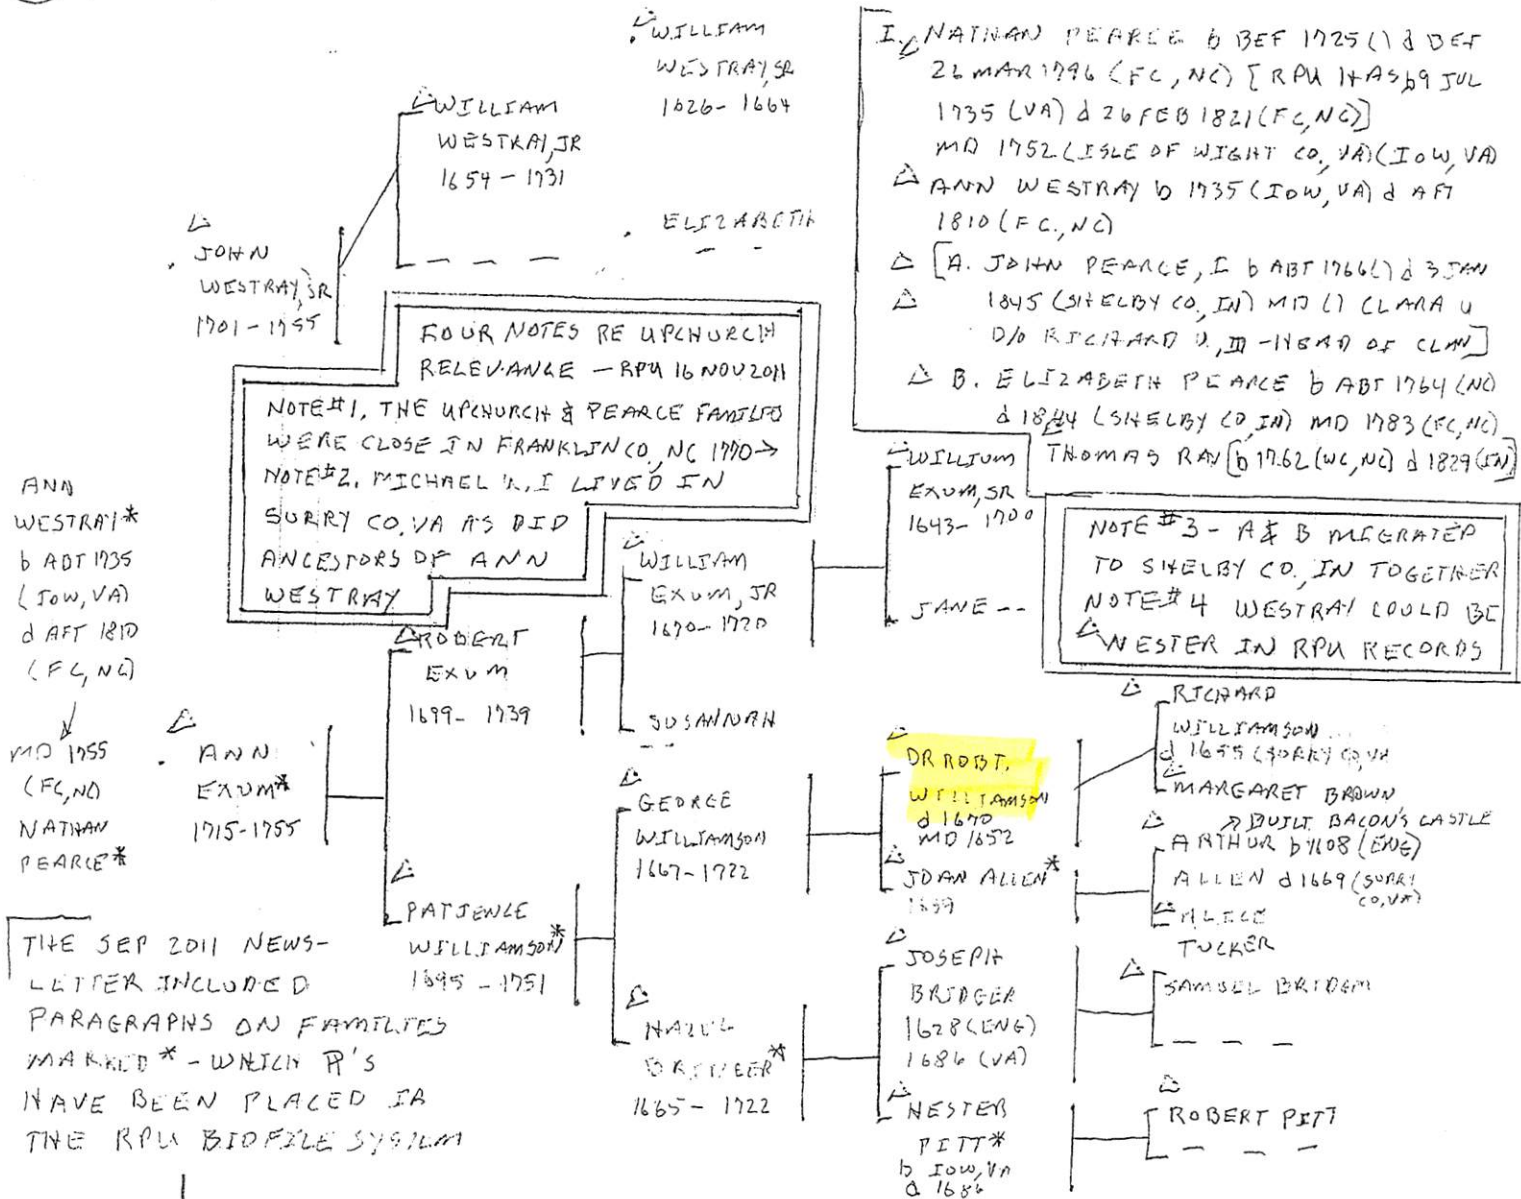 WILLIAM
WESTRAY, SR
1626- 1664
WILLIAM
WESTRAY, JR
1654 - 1731
ELIZABETH
JOHN
WESTRAY, SR
1701 - 1755
I. NATHAN PEARCE b BEF 1725 () d BEF
26 MAR 1796 (FC, NC) [RPU HAS b 9 JUL
1735 (VA) d 26 FEB 1821 (FC, NC)]
MD 1752 (ISLE OF WIGHT CO., VA) (IOW, VA)
ANN WESTRAY b 1735 (IOW, VA) d AFT
1810 (FC., NC)
[A. JOHN PEARCE, I b ABT 1766 () d 3 JAN
1845 (SHELBY CO, IN) MD () CLARA U
D/O RICHARD U., III - HEAD OF CLAN]
B. ELIZABETH PEARCE b ABT 1764 (NC)
d 1844 (SHELBY CO, IN) MD 1783 (FC, NC)
THOMAS RAY [b 1762 (WC, NC) d 1829 (IN)]
FOUR NOTES RE UPCHURCH
RELEVANCE - RPU 16 NOV 2011
NOTE #1, THE UPCHURCH & PEARCE
WERE CLOSE IN FRANKLIN CO, NC 1770 →
NOTE #2, MICHAEL U, I LIVED IN
SURRY CO. VA AS DID
ANCESTORS OF ANN
WESTRAY
NOTE #3 - A & B MIGRATED
TO SHELBY CO., IN TOGETHER
NOTE #4 WESTRAY COULD BE
WESTER IN RPU RECORDS
ANN
WESTRAY *
b ABT 1735
(IOW, VA)
d AFT 1810
(FC, NC)
MD 1755
(FC, NC)
NATHAN
PEARCE *
ANN
EXUM *
1715-1755
ROBERT
EXUM
1699- 1739
PATIENCE
WILLIAMSON *
1695 - 1751
WILLIAM
EXUM, JR
1670- 1720
SUSANNAH
--
WILLIUM
EXUM, SR
1643- 1700
JANE --
GEORGE
WILLIAMSON
1667- 1722
BRIDGER *
1665- 1722
DR ROBT.
WILLIAMSON
d 1670
MD 1652
JOAN ALLEN *
JOSEPH
BRIDGER
1628 (ENG)
1686 (VA)
HESTER
PITT *
b IOW, VA
d 1686
RICHARD
WILLIAMSON
d 1655 (SURRY CO, VA
MARGARET BROWN
→ BUILT BACON'S CASTLE
ARTHUR b 1608 (ENG)
ALLEN d 1669 (SURRY
CO, VA)
ALICE
TUCKER
SAMUEL
ROBERT PITT
THE SEP 2011 NEWS-
LETTER INCLUDED
PARAGRAPHS ON FAMILIES
MARKED * - WHICH ¶'S
HAVE BEEN PLACED IN
THE RPU BIOFILE SYSTEM